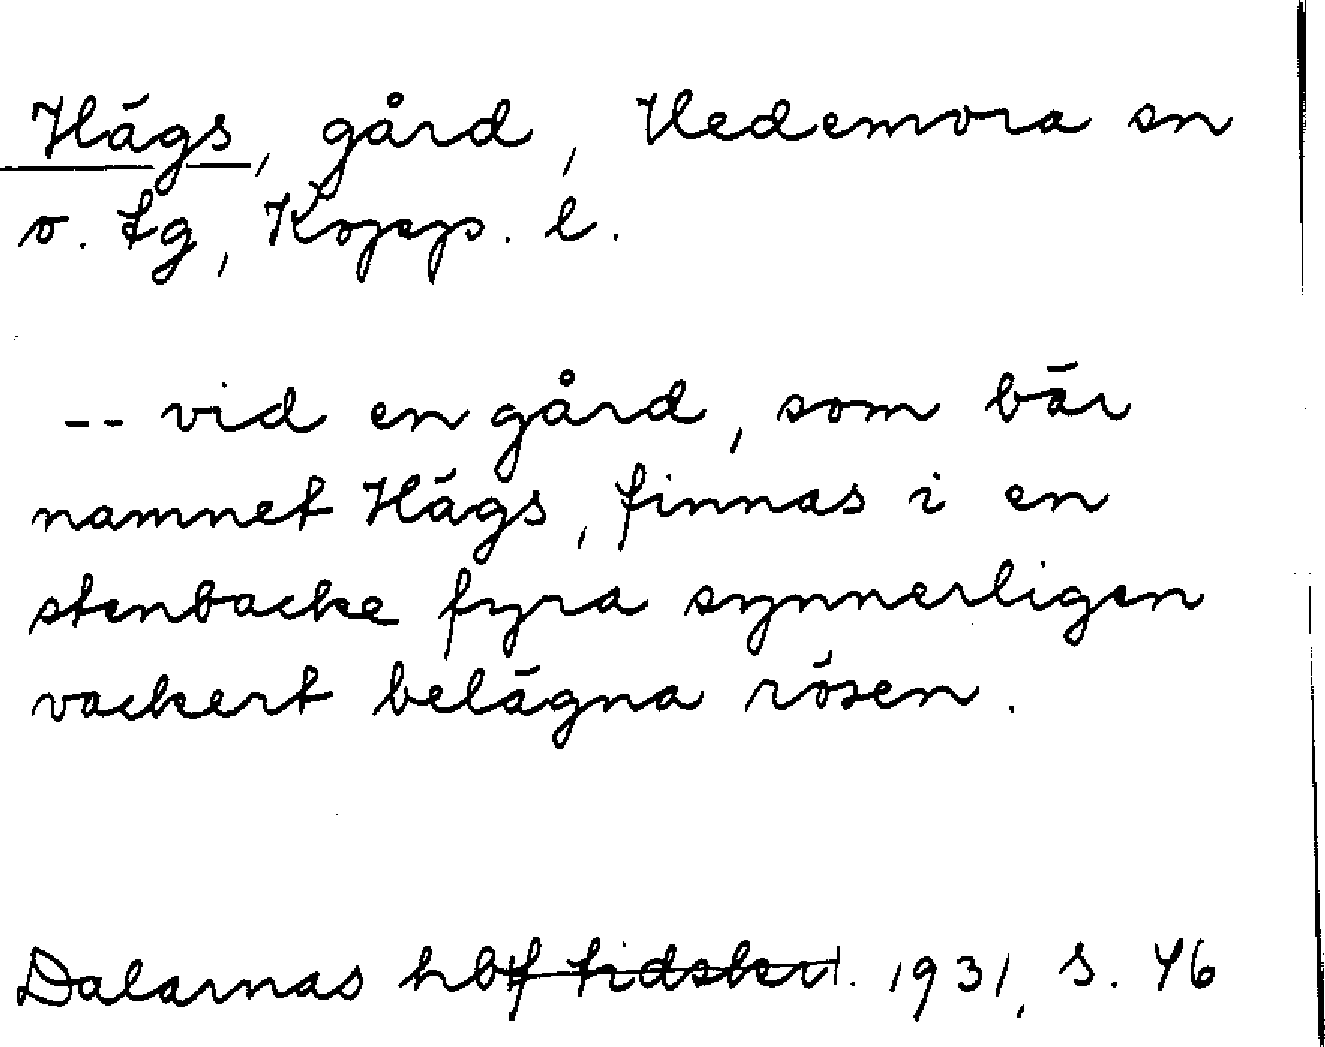 Hägs, gård, Hedemora sn
o. tg, Kopp. l.
-- vid en gård, som bär
namnet Hägs, finnas i en
stenbacke fyra synnerligen
vackert belägna rösen.
Dalarnas hbf tidskr. 1931, s. 46